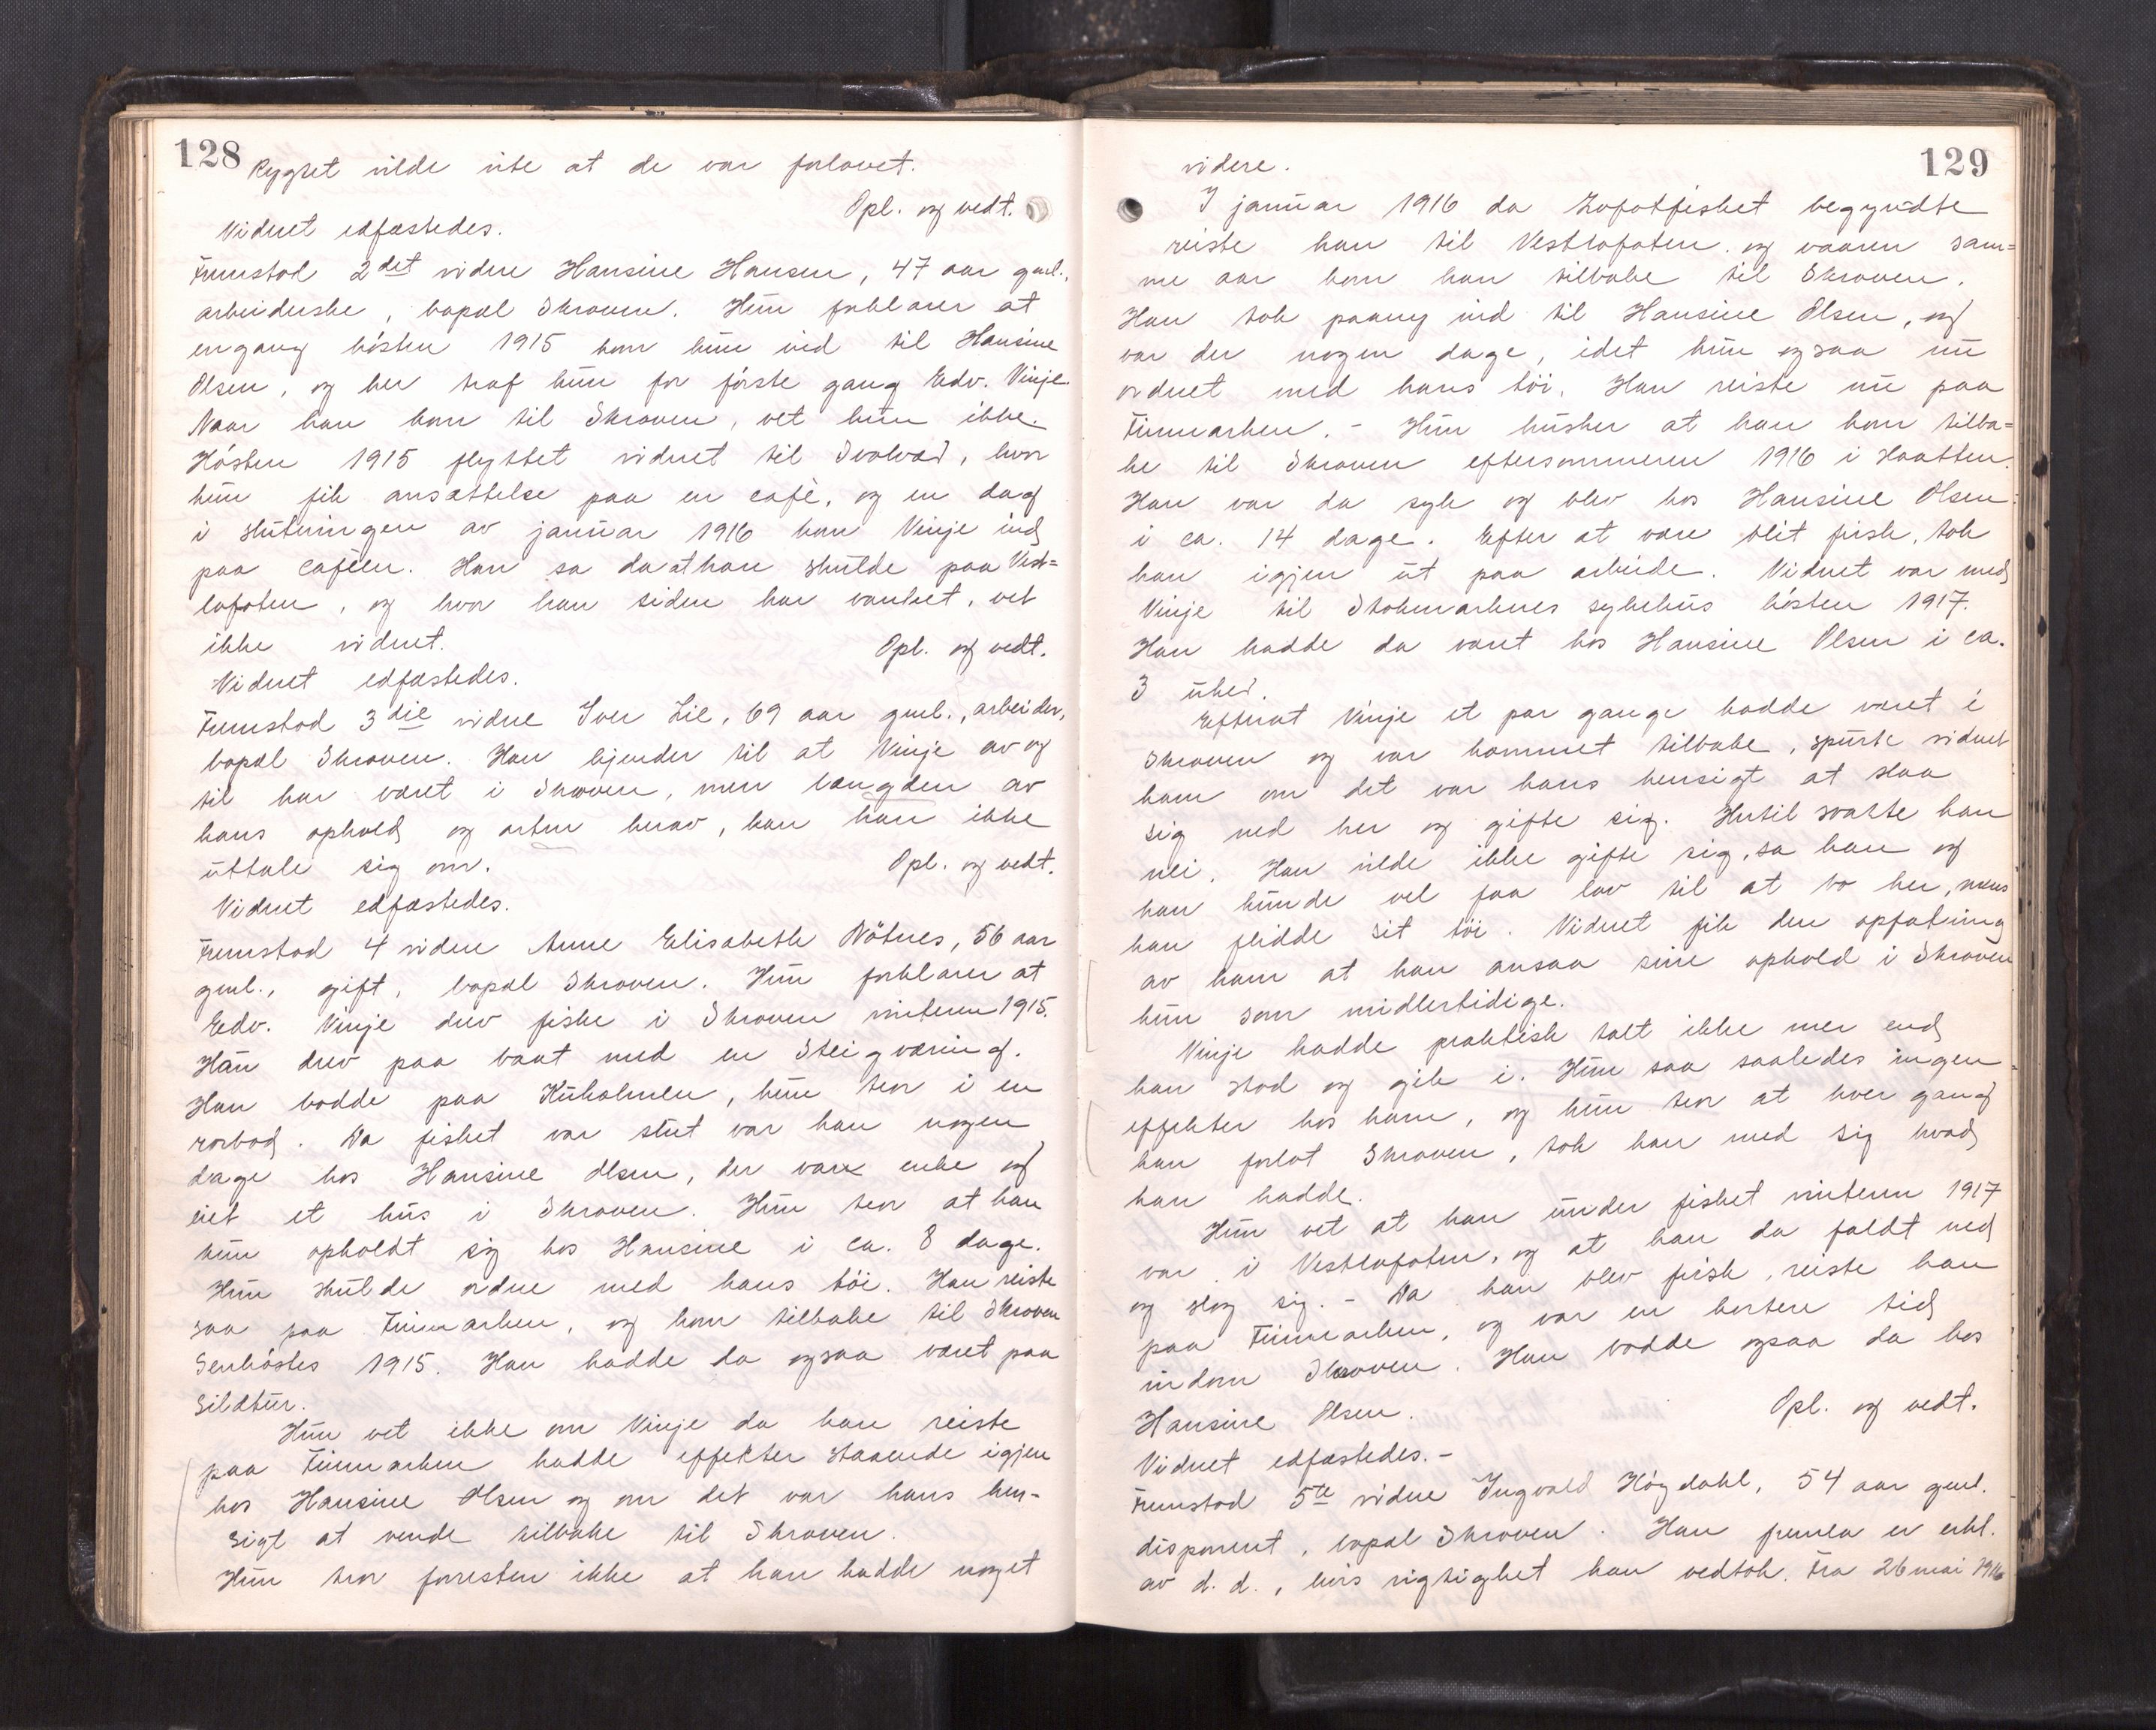 128
Rygtet vilde vite at de var forlovet.
Opl. og vedt.
Vidnet edfæstedes.
Fremstod 2det vidne Hansine Hansen, 47 aar gml.,
arbeiderske, bopæl Skroven. Hun forklarer at
engang hösten 1915 kom hun ind til Hansine
Olsen, og her traf hun for förste gang Edv. Vinje.
Naar han kom til Skroven, vet hun ikke.
Hösten 1915 flyttet vidnet til Svolvær, hvor
hun fik ansættelse paa en café, og en dag
i slutningen av januar 1916 kom Vinje ind
paa caféen. Han sa da at han skulde paa Vest=
lofoten, og hvor han siden har vanket, vet
ikke vidnet.
Opl. og vedt.
Vidnet edfæstedes.
Fremstod 3die vidne Iver Lie, 69 aar gml., arbeider,
bopæl Skroven. Han kjender til at Vinje av og
til har været i Skroven, men længden av
hans ophold og arten herav, kan han ikke
uttale sig om.
Opl. og vedt.
Vidnet edfæstedes.
Fremstod 4 vidne Anne Elisabeth Nötnes, 56 aar
gml., gift, bopæl Skroven. Hun forklarer at
Edv. Vinje drev fiske i Skroven vinteren 1915.
Han drev paa baat med en Steigværing.
Han bodde paa Kuholmen, hun tror i en
rorbod. Da fisket var slut var han nogen
dage hos Hansine Olsen, der var enke og
eiet et hus i Skroven. Hun tror at han
kun opholdt sig hos Hansine i ca. 8 dage.
Hun skulde ordne med hans töi. Han reiste
saa paa Finmarken, og kom tilbake til Skroven
Senhöstes 1915. Han hadde da ogsaa været paa
Sildtur.
Hun vet ikke om Vinje da han reiste
paa Finmarken hadde effekter staaende igjen
hos Hansine Olsen og om det var hans hen-
sigt at vende tilbake til Skroven.
Hun tror forresten ikke at han hadde noget
129
videre.
I januar 1916 da Lofotfisket begyndte
reiste han til Vestlofoten. og vaaren sam=
me aar kom han tilbake til Skroven.
Han tok paany ind til Hansine Olsen, og
var der nogen dage, idet hun ogsaa nu
ordnet med hans töi. Han reiste nu paa
Finmarken. - Hun husker at han kom tilba=
ke til Skroven eftersommeren 1916 i slaatten.
Han var da syk og blev hos Hansine Olsen
i ca. 14 dage. Efter at være blit frisk, tok
han igjen ut paa arbeide. Vidnet var med
Vinje til Stokmarknes sykehus hösten 1917.
Han hadde da været hos Hansine Olsen i ca.
3 uker.
Efterat Vinje et par gange hadde været i
Skroven og var kommet tilbake, spurte vidnet
ham om det var hans hensigt at slaa
sig ned her og gifte sig. Hertil svarte han
nei. Han vilde ikke gifte sig, sa han og
han kunde vel faa lov til at bo her, mens
han flidde sit töi. Vidnet fik den opfatning
av ham at han ansaa sine ophold i Skroven
kun som midlertidige.
Vinje hadde praktisk talt ikke mer end
han stod og gik i. Hun saa saaledes ingen
effekter hos ham, og hun tror at hver gang
han forlot Skroven, tok han med sig hvad
han hadde.
Hun vet at han under fisket vinteren 1917
var i Vestlofoten, og at han da faldt ned
og slog sig. - Da han blev frisk, reiste han
paa Finmarken, og var en kortere tid
indom Skroven. Han bodde ogsaa da hos
Hansine Olsen.
Opl. og vedt.
Vidnet edfæstedes.-
Fremstod 5te vidne Ingvald Högdahl, 54 aar gml.
disponent, bopæl Skroven. Han fremla en erkl.
av d. d., hvis rigtighet han vedtok. Fra 26 mai 1916